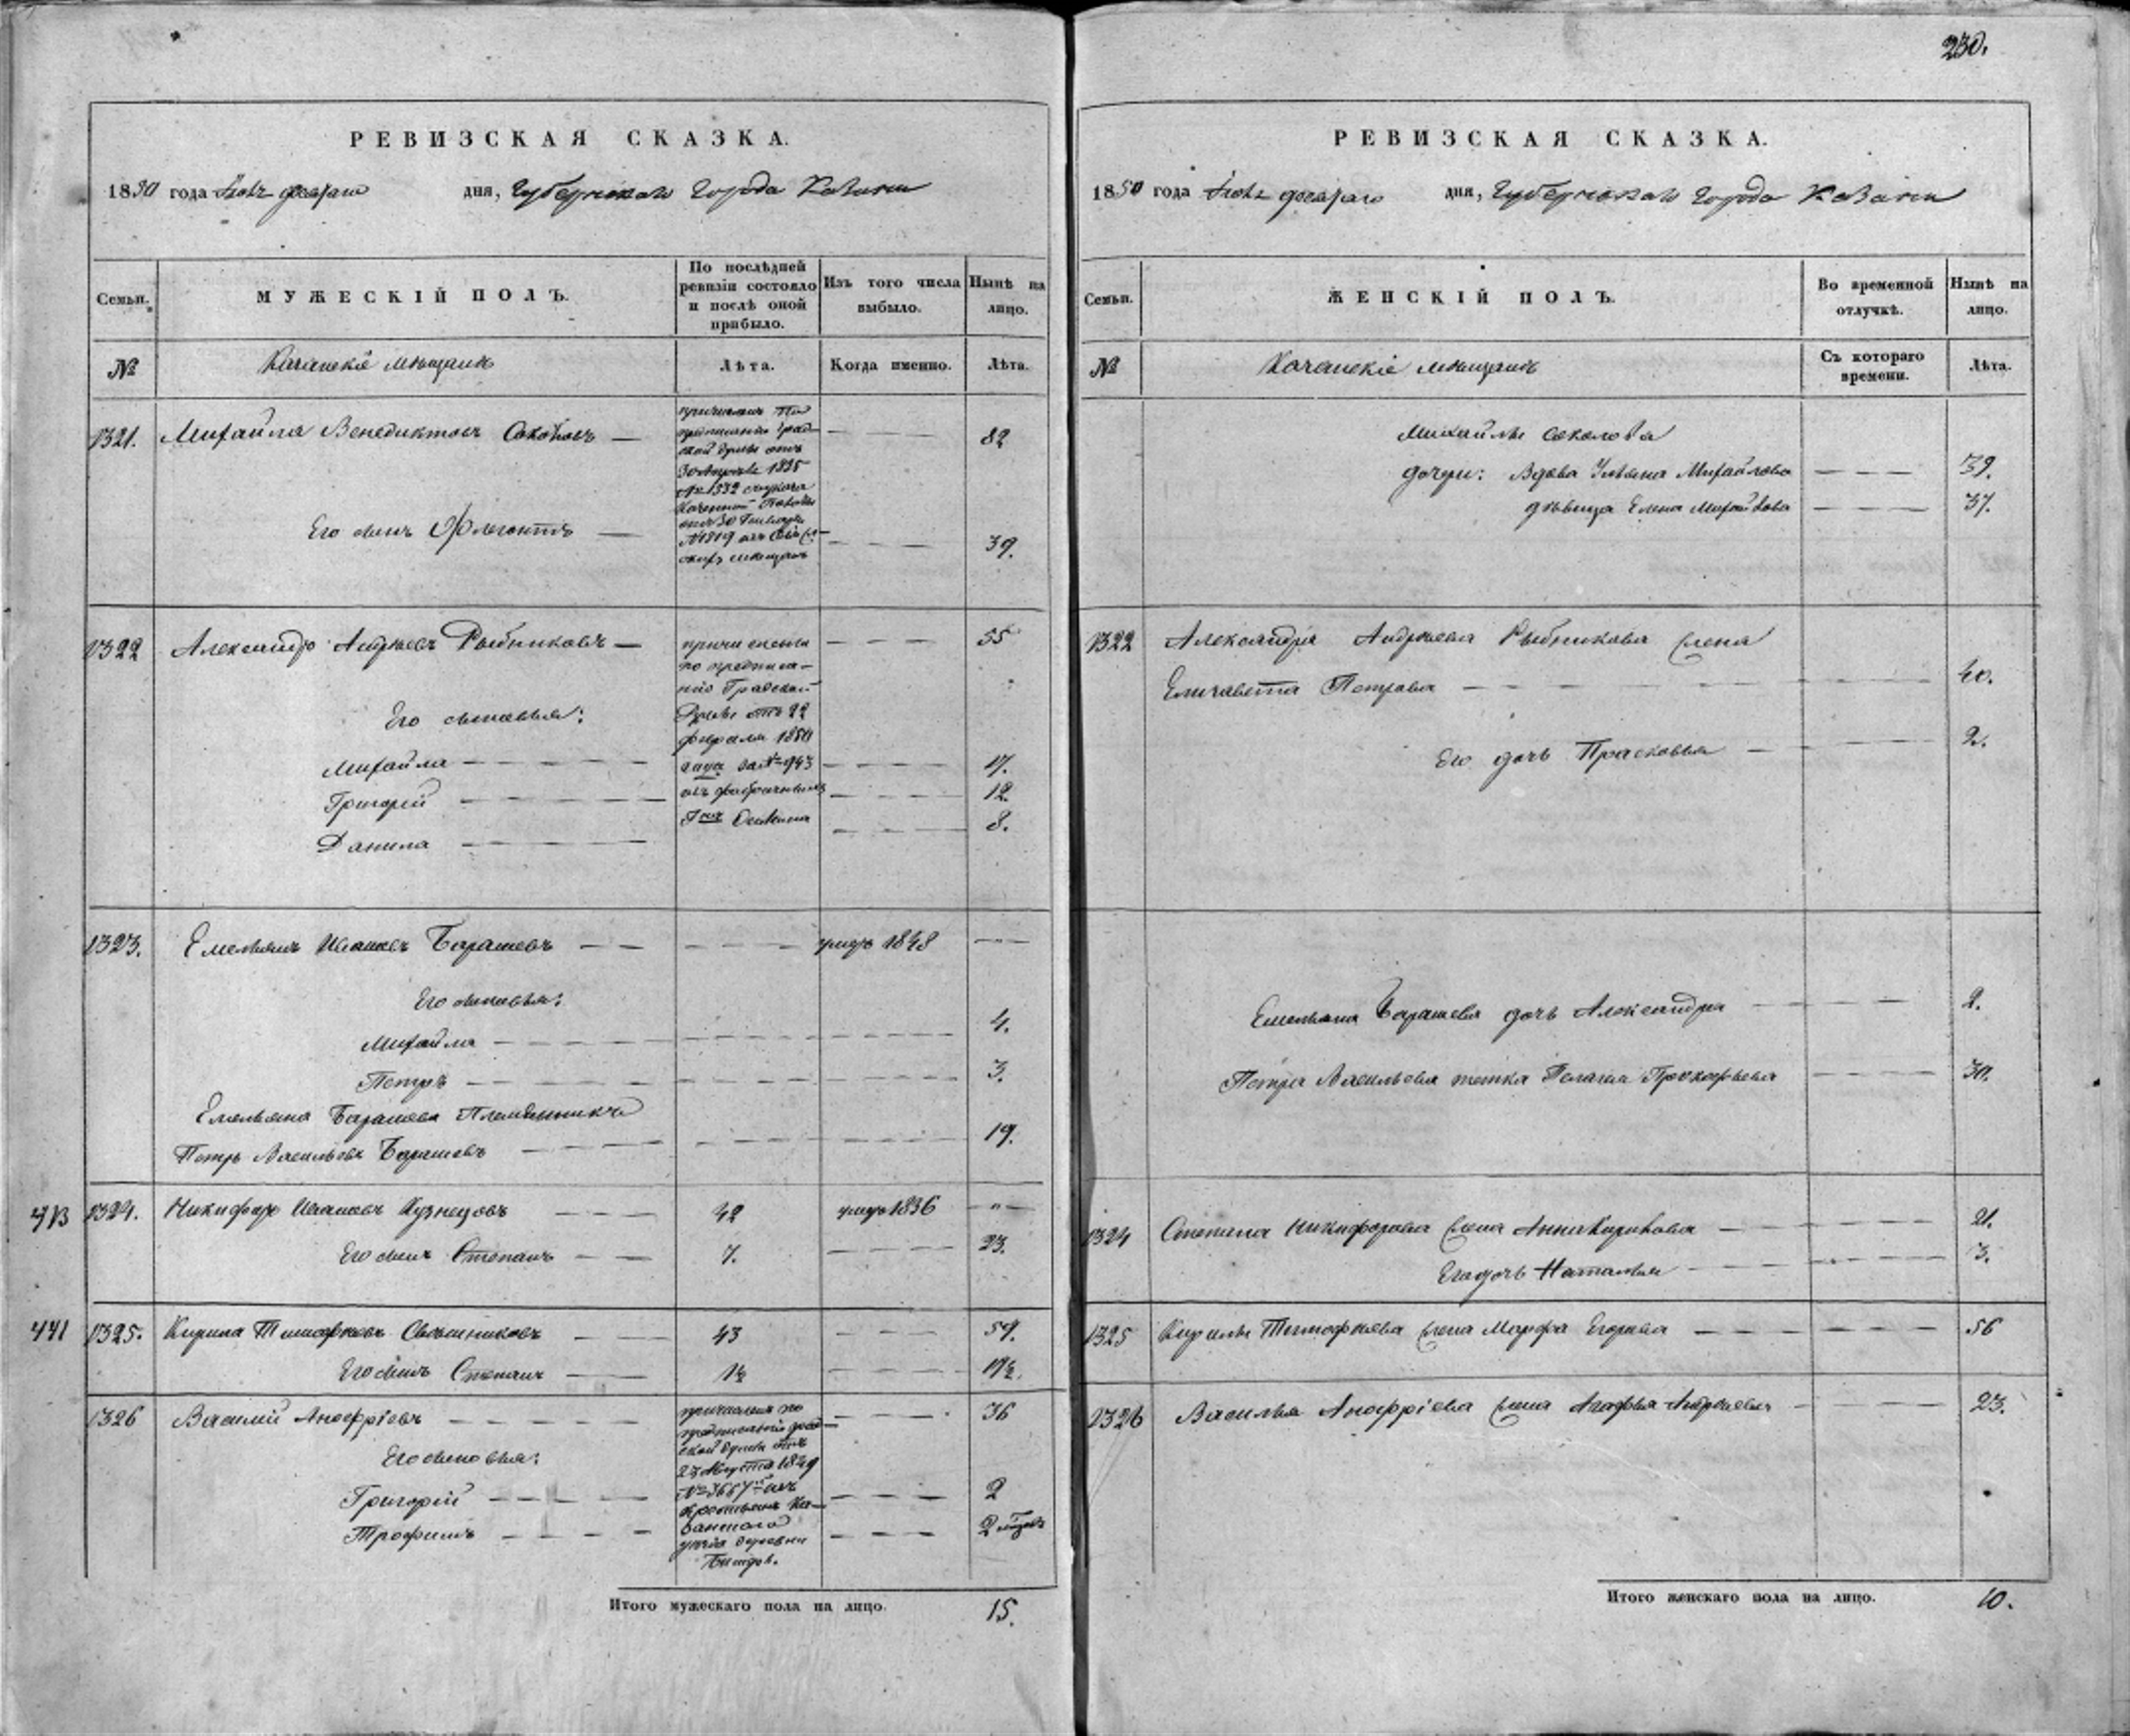 230.
РЕВИЗСКАЯ СКАЗКА.
1850 года дня, Губернскаго Города Казани
Семьи.
МУЖЕСКІЙ ПОЛЪ.
По послѣдней ревизіи состояло и послѣ оной прибыло.
Изъ того числа выбыло.
Нынѣ на лицо.
№
Казанскіе мѣщане
Лѣта.
Когда именно.
Лѣта.
1321. Михайла Венедиктовъ Соколовъ — — — 82
причислен по
предписанію Град-
ской Думы отъ
30 Апрѣля 1835
№ 1332
Казенной Палаты
№ 1819 изъ
мѣщанъ
Его сынъ — — — 39.
1322 Александръ Андреевъ Рыбниковъ — — — 55
причислены
по предписа-
нію Градской
Думы отъ 22
февраля 1850
года за № 943
изъ фабричныхъ
Гна Осокина
Его сыновья:
Михайла — — — 17.
Григорій — — — 12.
Данила — — — 8.
1323. Емельянъ Ивановъ Барашевъ — — — умеръ 1848 — —
Его сыновья:
Михайла — — — 4.
Петръ — — — 3.
Емельяна Барашева Племянникъ
Петръ Васильевъ Барашевъ — — — 19.
1324. Никифоръ Ивановъ Кузнецовъ — — 42 умеръ 1836 — " —
Его сынъ Степанъ — — 7. — — — 23.
441 1325. Кирила Тимофѣевъ — — 43 — — — 59.
Его сынъ Степанъ — — 1½ — — — 17½.
1326 Василій Анофріевъ — — — 36
причислен по
предписанію Град-
ской Думы отъ
23 Августа 1849
№ 3667 изъ
крестьянъ Ка-
занскаго
уѣзда деревни
Его сыновья:
Григорій — — — 2
Трофимъ — — — 2
Итого мужескаго пола на лицо. 15.
РЕВИЗСКАЯ СКАЗКА.
1850 года дня, Губернскаго Города Казани
Семьи.
ЖЕНСКІЙ ПОЛЪ.
Во временной отлучкѣ.
Нынѣ на лицо.
№
Казанскіе мѣщане
Съ котораго времени.
Лѣта.
Михайлы Соколова
дочери: Вдова Ульяна Михайлова — — — 39.
дѣвица Елена Михайлова — — — 37.
1322 Александра Андреева Рыбникова жена
Елизавета Петрова — — — 40.
Его дочь Прасковья — — — 2.
Емельяна Барашева дочь Александра — — — 2.
Петра Васильева тетка Пелагея Прокофьева — — — 30.
1324 Степана Никифорова жена Анна Кирилова — — — 21.
Его дочь Наталья — — — 3.
1325 Кирилы Тимофѣева жена Марфа Егорова — — — 56
1326 Василья Анофріева жена Агафья Андреева — — — 23.
Итого женскаго пола на лицо. 10.